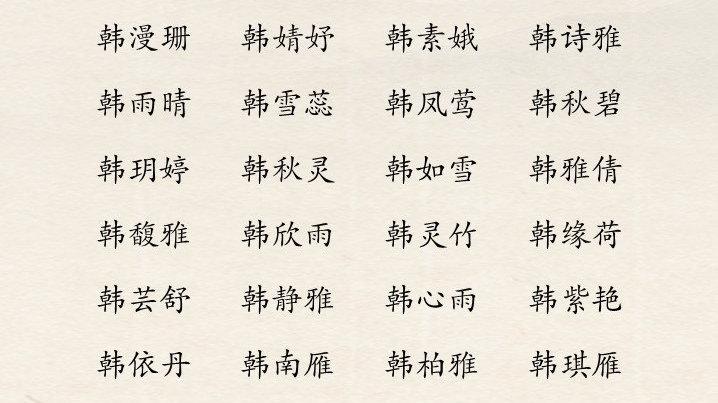 韩漫珊 韩婧妤 韩素娥 韩诗雅
韩雨晴 韩雪蕊 韩凤莺 韩秋碧
韩玥婷 韩秋灵 韩如雪 韩雅倩
韩馥雅 韩欣雨 韩灵竹 韩缘荷
韩芸舒 韩静雅 韩心雨 韩紫艳
韩依丹 韩南雁 韩柏雅 韩琪雁